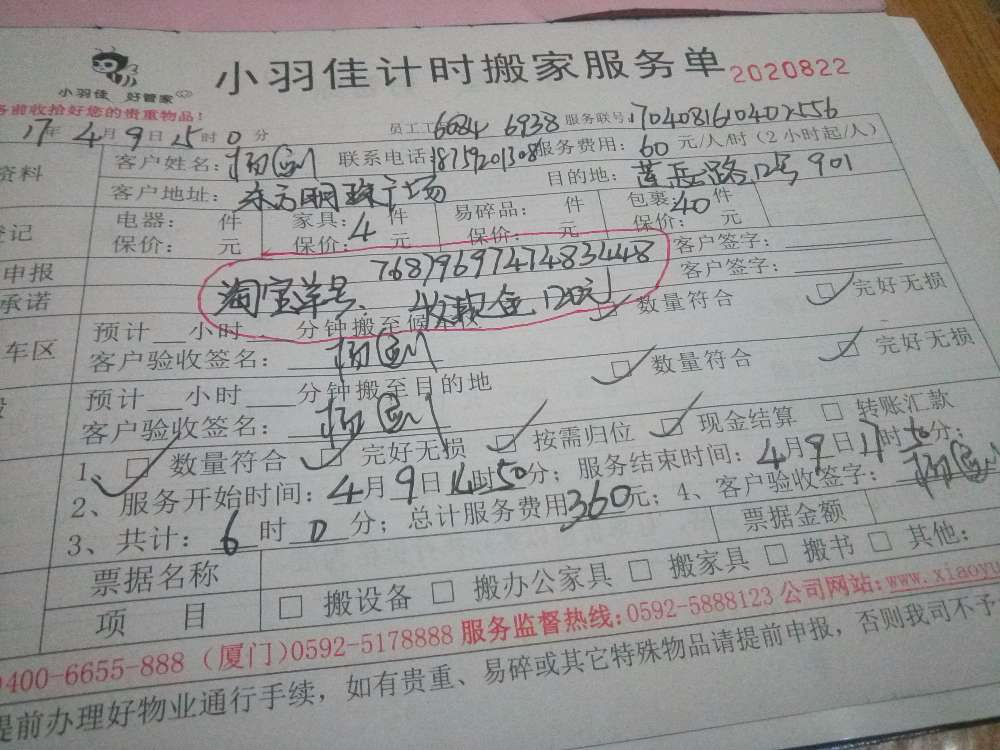 小羽佳 好管家
小羽佳计时搬家服务单 2020822
前收拾好您的贵重物品!
17年4月9日15时0分 员工工 6084 6938 服务联号 1704081610402556
资料 客户姓名: 联系电话 18759201308 服务费用: 60 元/人/时(2小时起/人)
客户地址: 东方明珠广场 目的地: 莲岳路12号901
登记 电器: 件 家具: 4 件 易碎品: 件 包裹: 40 件
保价: 元 保价: 元 保价: 元 保价: 元
申报 7687969747483448 客户签字:
承诺 淘宝单号. 收现金120元 客户签字:
车区 预计 小时 分钟搬至候 数量符合 完好无损
客户验收签名:
预计 小时 分钟搬至目的地 数量符合 完好无损
客户验收签名:
1、 数量符合 完好无损 按需归位 现金结算 转账汇款
2、服务开始时间: 4月9日14时50分; 服务结束时间: 4月9日17时50分;
3、共计: 6时0分; 总计服务费用360元; 4、客户验收签字:
票据名称 票据金额
项 目 搬设备 搬办公家具 搬家具 搬书 其他:
400-6655-888 (厦门)0592-5178888 服务监督热线:0592-5888123 公司网站:www.xiaoyu
提前办理好物业通行手续,如有贵重、易碎或其它特殊物品请提前申报,否则我司不予